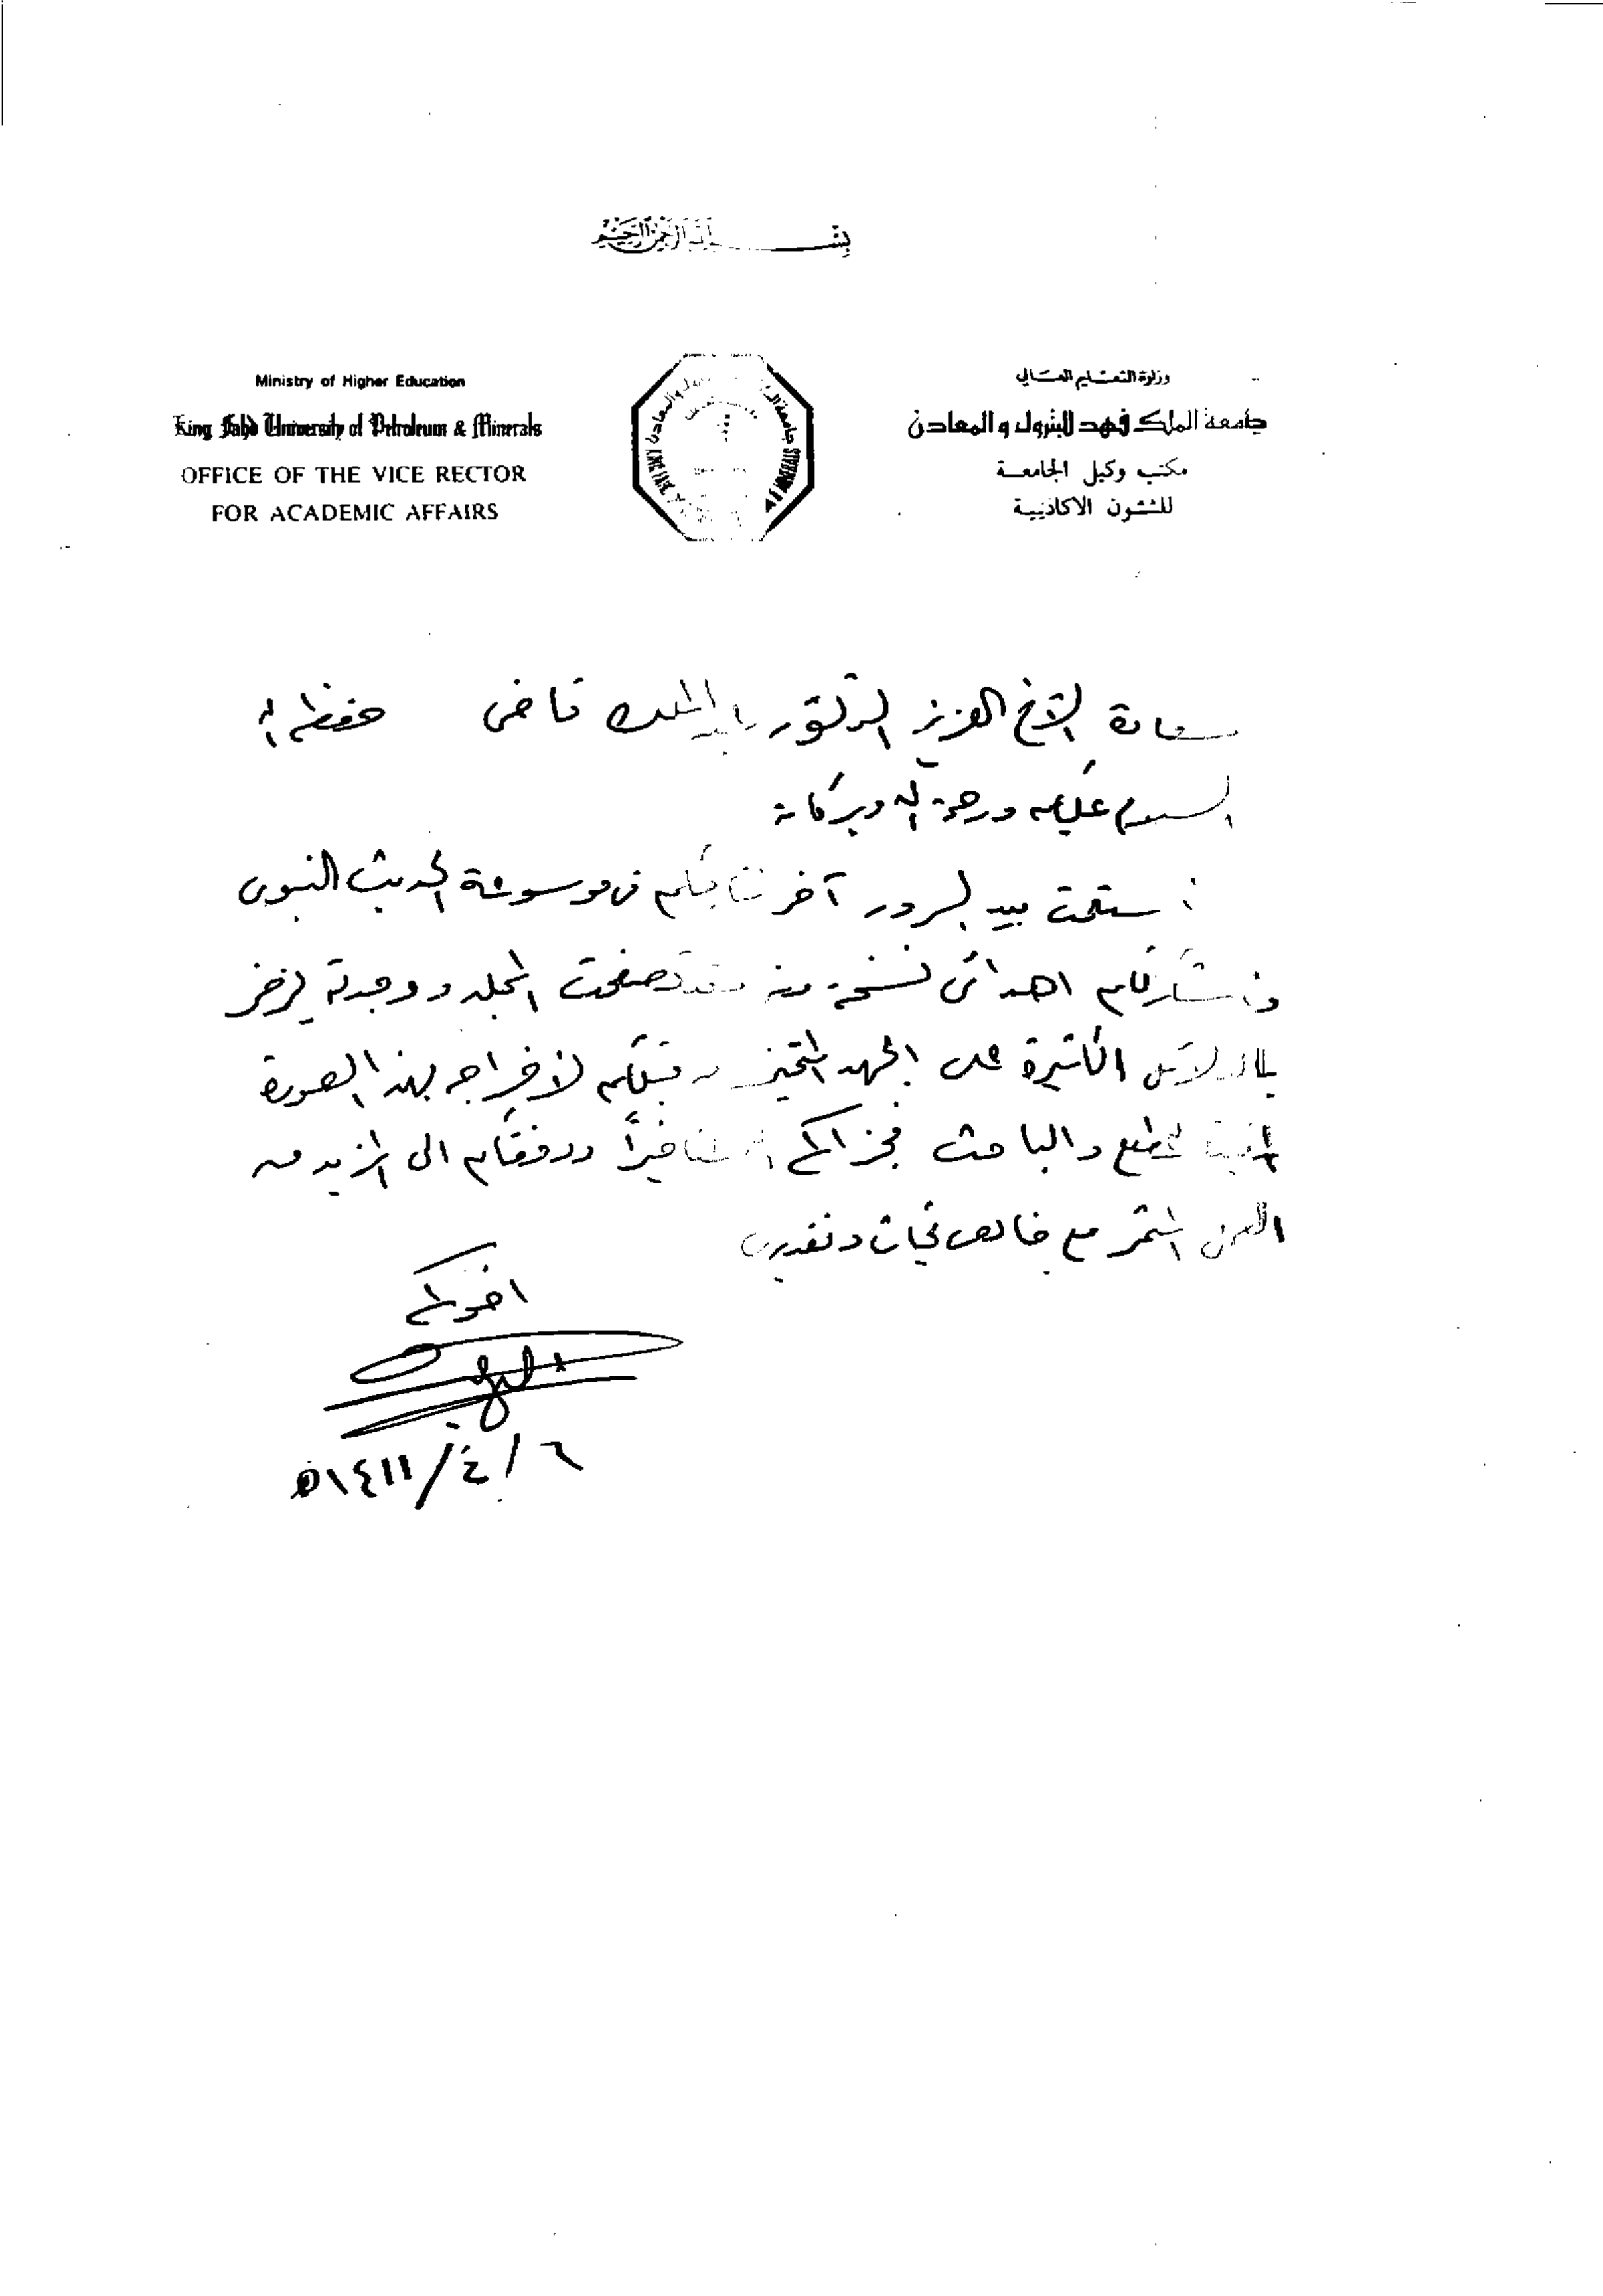 بسم الله الرحمن الرحيم
Ministry of Higher Education
King Fahd University of Petroleum & Minerals
OFFICE OF THE VICE RECTOR
FOR ACADEMIC AFFAIRS
وزارة التعليم العالي
جامعة الملك فهد للبترول والمعادن
مكتب وكيل الجامعة
للشئون الاكاديمية
سعادة الأخ العزيز الدكتور عبدالملك قاضي حفظه الله
السلام عليكم ورحمة الله وبركاته
استلمت بيد السرور آخر نتاجكم في موسوعة الحديث النبوي
اهدائي نسخة منه تصفحت المجلد ووجدته يزخر
بالدلائل الكثيرة على الجهد المتميز من قبلكم لإخراجه بهذه الصورة
للمطلع والباحث فجزاكم الله خيراً ووفقكم الى المزيد من
العمل المثمر مع خالص تحياتي وتقديري
اخوكم
٦/٤/١٤١١ه